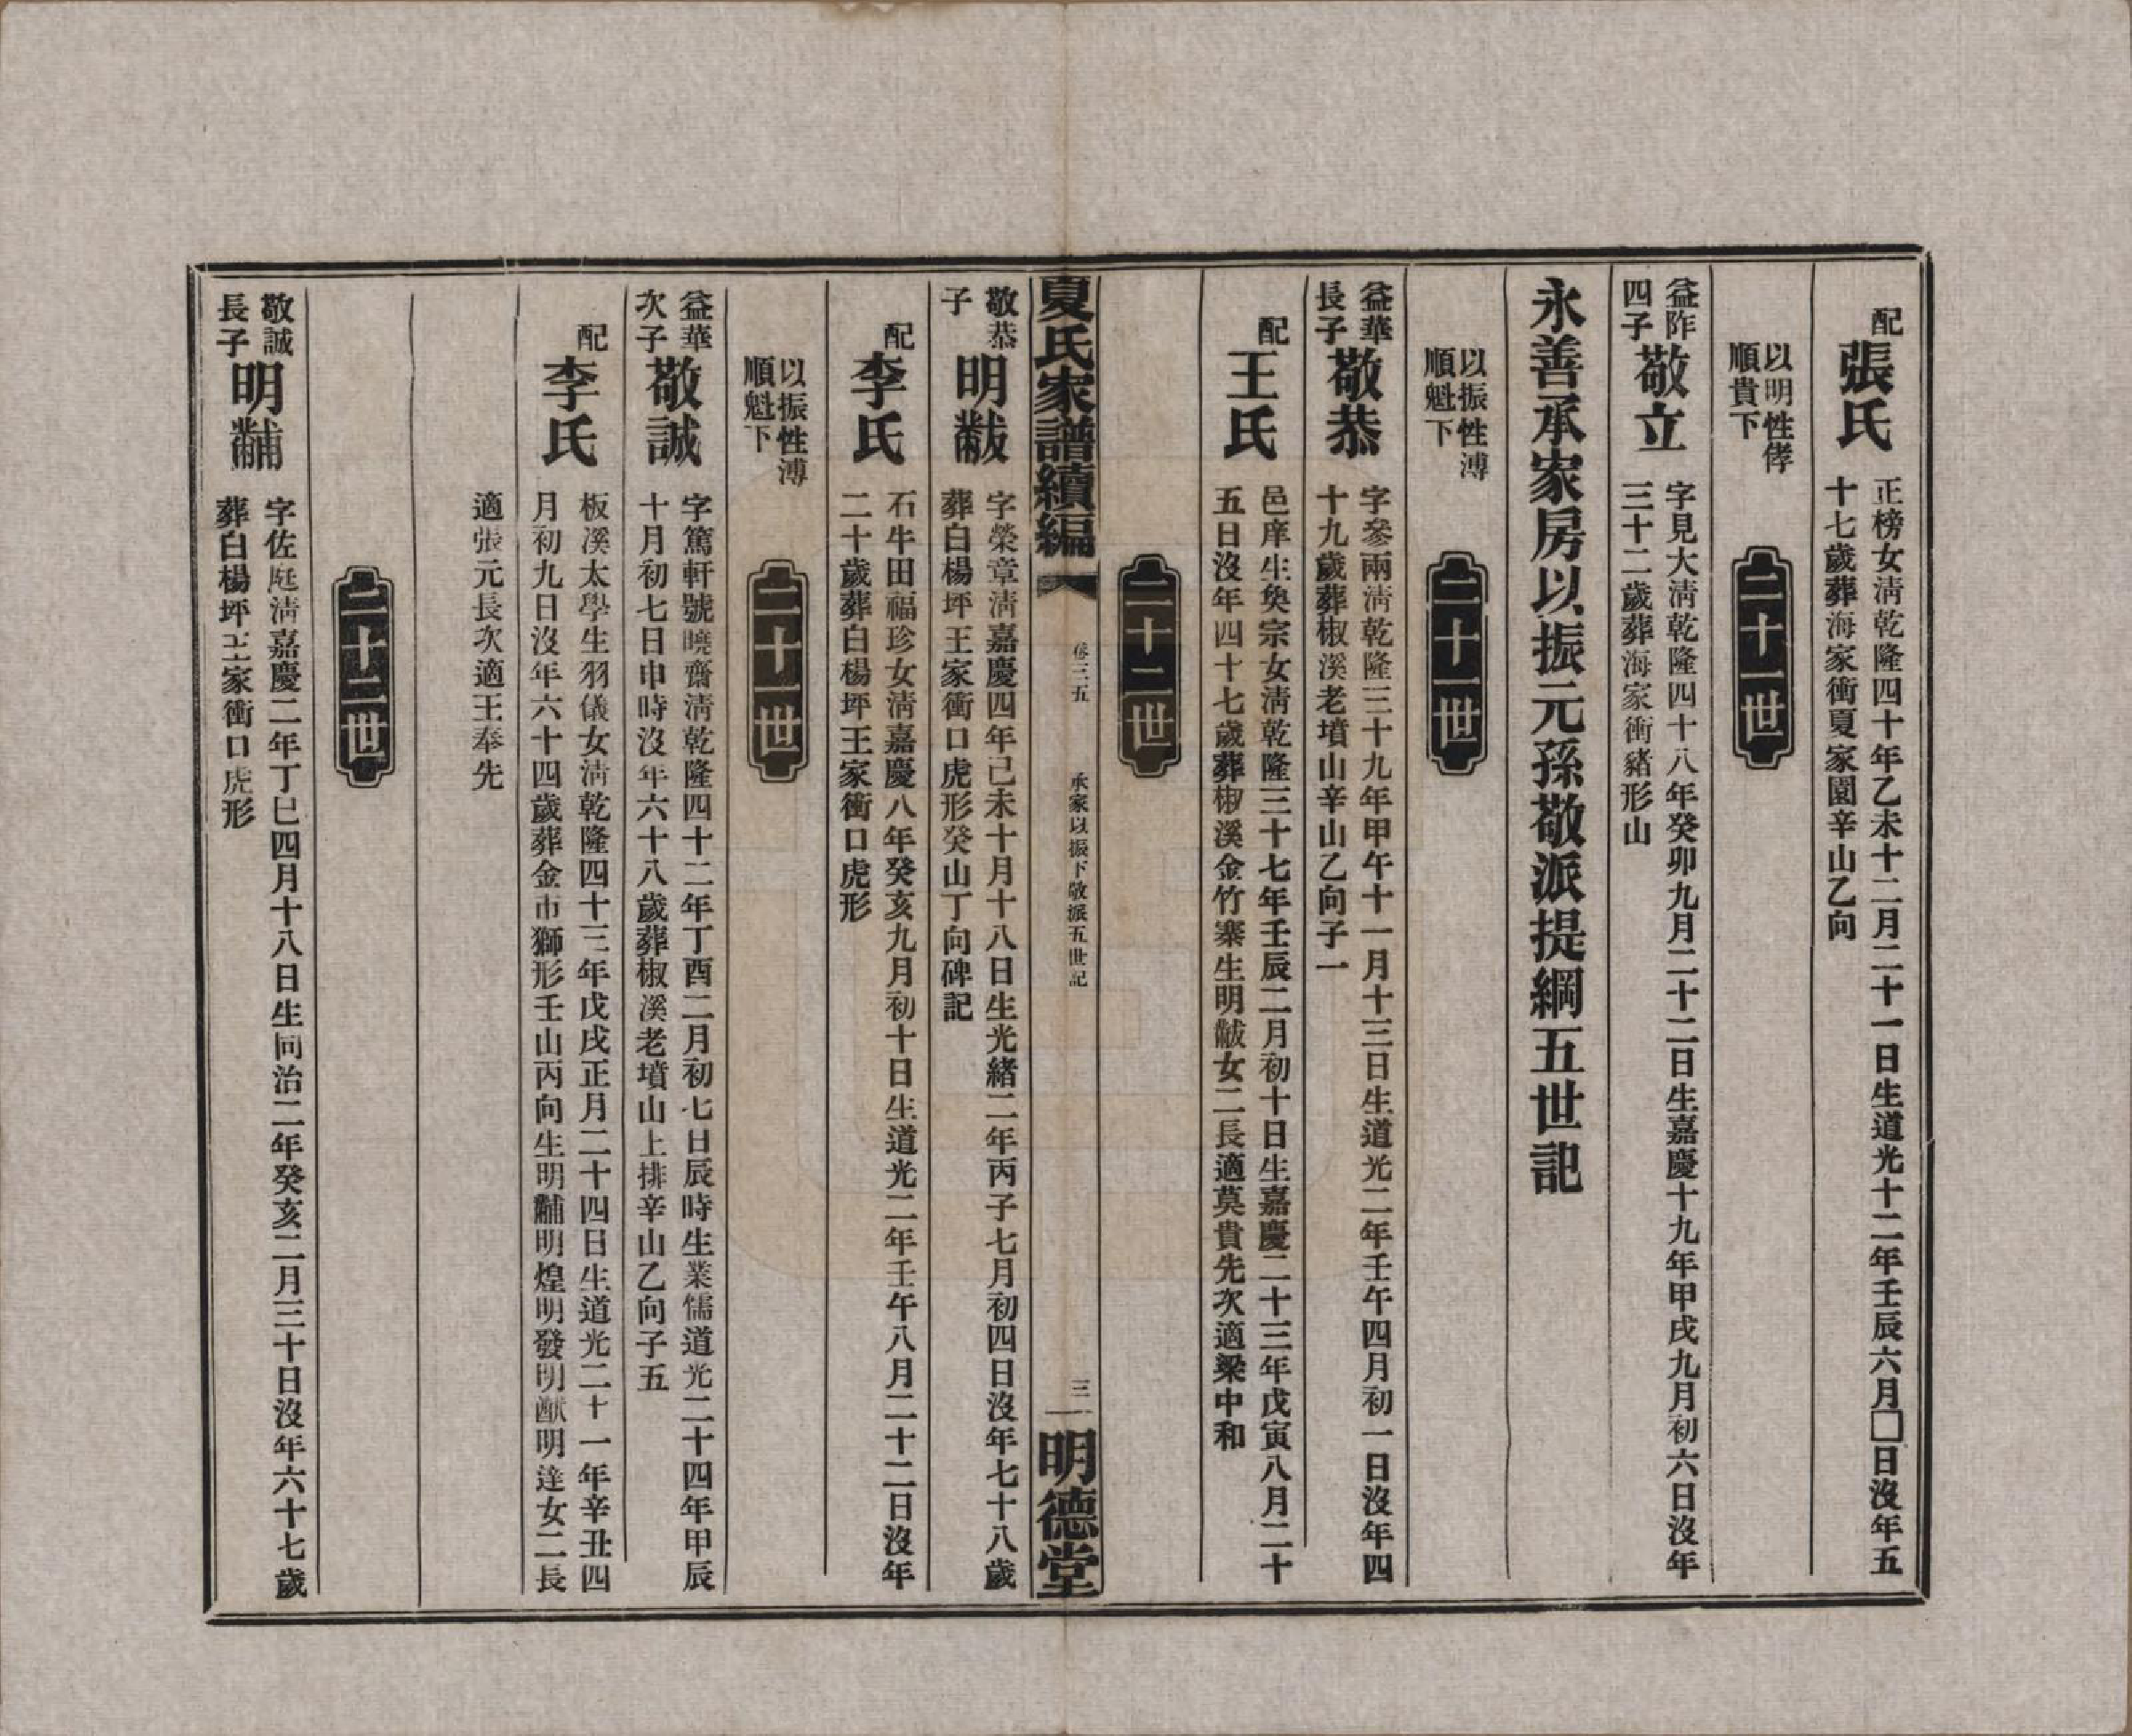 配
張氏
正榜女淸乾隆四十年乙未十二月二十一日生道光十二年壬辰六月□日沒年五
十七歲葬海家衝夏家園辛山乙向
以明性侼
順貴下
二十一世
益阼
四子
敬立
字見大淸乾隆四十八年癸卯九月二十二日生嘉慶十九年甲戌九月初六日沒年
三十二歲葬海家衝豬形山
永善承家房以振元孫敬派提綱五世記
以振性溥
順魁下
二十一世
益華
長子
敬恭
字參兩淸乾隆三十九年甲午十一月十三日生道光二年壬午四月初一日沒年四
十九歲葬椒溪老墳山辛山乙向子一
配
王氏
邑庠生奐宗女淸乾隆三十七年壬辰二月初十日生嘉慶二十三年戊寅八月二十
五日沒年四十七歲葬椒溪金竹寨生明黻女二長適莫貴先次適梁中和
二十二世
夏氏家譜續編
卷三五
承家以振下敬派五世記
三一
明德堂
敬恭
子
明黻
字榮章淸嘉慶四年己未十月十八日生光緒二年丙子七月初四日沒年七十八歲
葬白楊坪王家衝口虎形癸山丁向碑記
配
李氏
石牛田福珍女淸嘉慶八年癸亥九月初十日生道光二年壬午八月二十二日沒年
二十歲葬白楊坪王家衝口虎形
以振性溥
順魁下
二十一世
益華
次子
敬誠
字篤軒號曉齋淸乾隆四十二年丁酉二月初七日辰時生業儒道光二十四年甲辰
十月初七日申時沒年六十八歲葬椒溪老墳山上排辛山乙向子五
配
李氏
板溪太學生羽儀女淸乾隆四十三年戊戌正月二十四日生道光二十一年辛丑四
月初九日沒年六十四歲葬金市獅形壬山丙向生明黼明煌明發明猷明達女二長
適張元長次適王奉先
二十二世
敬誠
長子
明黼
字佐庭淸嘉慶二年丁巳四月十八日生同治二年癸亥二月三十日沒年六十七歲
葬白楊坪王家衝口虎形